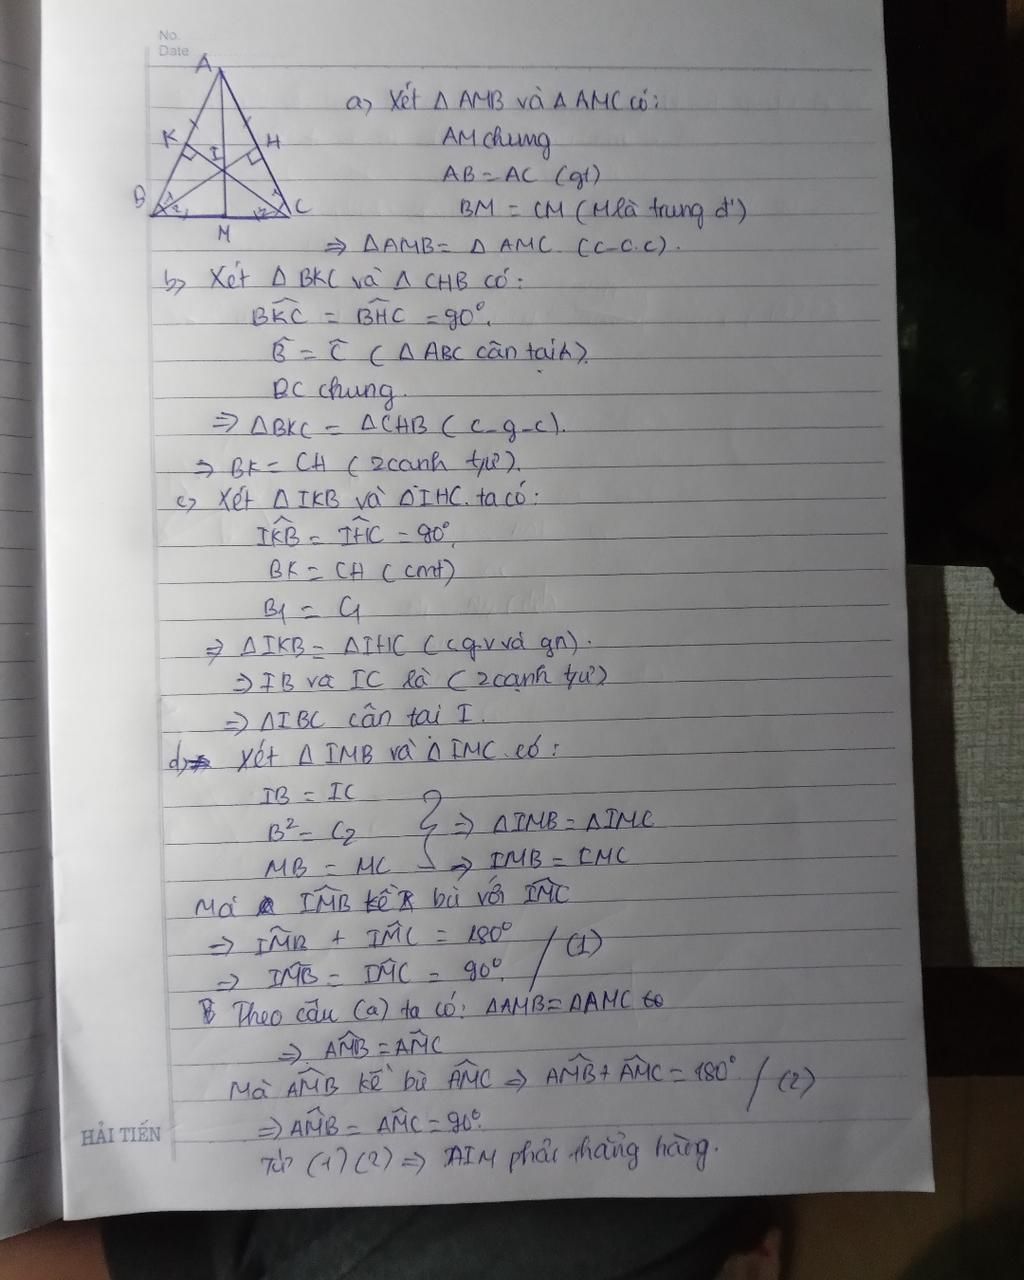 No.
Date
A
K
H
I
B
1
2
1
2
C
M
a) Xét Δ AMB và Δ AMC có:
AM chung
AB = AC (gt)
BM = CM (M là trung đ')
⇒ ΔAMB = Δ AMC (c-c.c).
b) Xét Δ BKC và Δ CHB có:
BK̂C = BĤC = 90°.
B̂ = Ĉ (Δ ABC cân tại A).
BC chung.
⇒ ΔBKC = ΔCHB (c-g-c).
⇒ BK = CH (2 cạnh tự).
c) Xét ΔIKB và ΔIHC ta có:
IK̂B = IĤC = 90°.
BK = CH (cmt)
B1 = C1
⇒ ΔIKB = ΔIHC (cg.v và gn).
⇒ IB và IC là (2 cạnh tự)
⇒ ΔIBC cân tại I.
d) Xét ΔIMB và ΔIMC có:
IB = IC
B² = C2
⇒ ΔIMB = ΔIMC
MB = MC
⇒ IMB = IMC
Mà IM̂B kề bù với IM̂C
⇒ IM̂B + IM̂C = 180°
(1)
⇒ IM̂B = IM̂C = 90°
Theo câu (a) ta có: ΔAMB = ΔAMC
⇒ AM̂B = AM̂C
Mà AM̂B kề bù AM̂C ⇒ AM̂B + AM̂C = 180°
(2)
⇒ AM̂B = AM̂C = 90°.
Từ (1) (2) ⇒ AIM phải thẳng hàng.
HẢI TIẾN